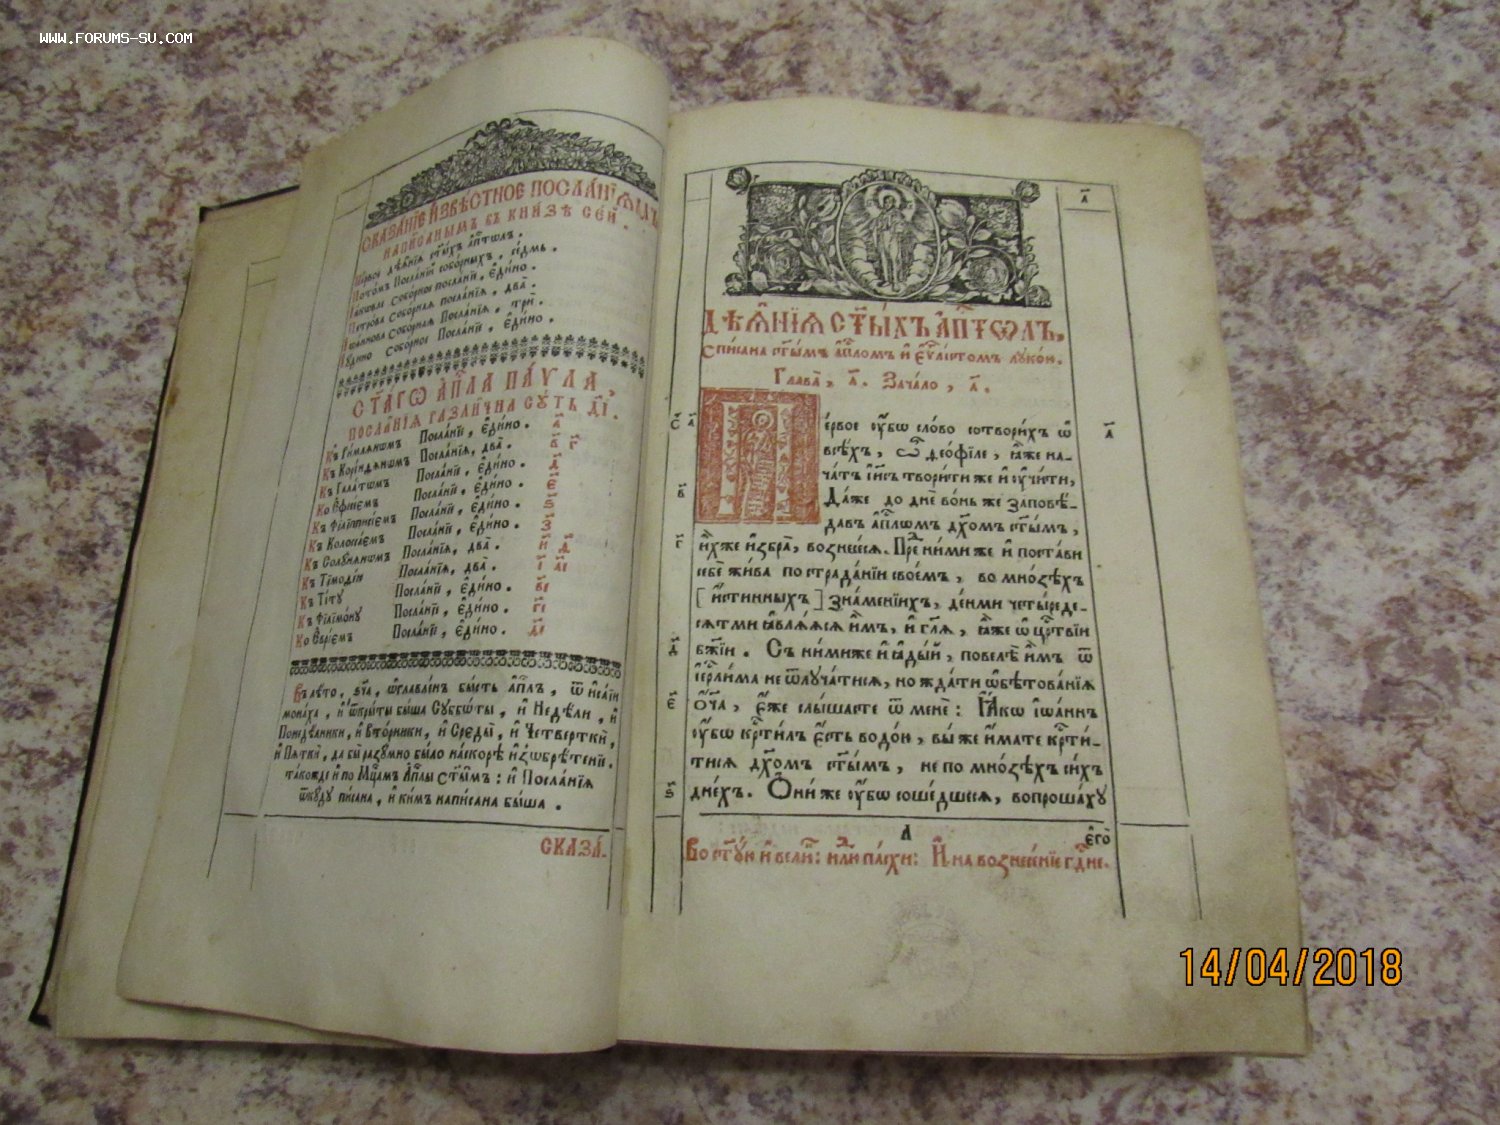 WWW.FORUMS-SU.COM
СКАЗА́НІЕ И҆ЗВѢ́СТНОЕ ПОСЛА́НІѦМЪ
НАПИ́САННЫМЪ ВЪ КНИ́ЗѢ СЕ́Й.
Пе́рвое дѣѧ̑нїѧ ст҃ы́хъ а҆пⷭ҇тѡлъ.
Пото́мъ Посла́нїй собо́рныхъ, се́дмь.
І҆а́кѡвле Собо́рное посла́нїе, є҆ди́но.
Петро́ва Собѡ́рнаѧ посла̑нїѧ, два̀.
І҆ѡа́ннова Собѡ́рнаѧ Посла̑нїѧ, трѝ.
І҆у́дино Собо́рное Посла́нїе, є҆ди́но.
СТ҃А́ГѠ А҆Пⷭ҇ЛА ПА́ѴЛА,
ПОСЛА̑НІѦ РАЗЛИ̑ЧНА СУ́ТЬ Д҃І.
Къ Ри́млѧнѡмъ Посла́нїе, є҆ди́но. а҃
Къ Корі́нѳѧнѡмъ Посла̑нїѧ, два̀. в҃ г҃
Къ Гала́тѡмъ Посла́нїе, є҆ди́но. д҃
Ко Є҆фе́сеємъ Посла́нїе, є҆ди́но. є҃
Къ Філїппи́сїємъ Посла́нїе, є҆ди́но. ѕ҃
Къ Колосса́ємъ Посла́нїе, є҆ди́но. з҃
Къ Солу́нѧнѡмъ Посла̑нїѧ, два̀. и҃ ѳ҃
Къ Тїмоѳе́ю Посла̑нїѧ, два̀. і҃ а҃і
Къ Ті́ту Посла́нїе, є҆ди́но. в҃і
Къ Філїмо́ну Посла́нїе, є҆ди́но. г҃і
Ко Є҆вре́ємъ Посла́нїе, є҆ди́но. д҃і
ѡ҆главле́нъ бы́сть а҆пⷭ҇лъ, ѿ и҆са́їи
мона́ха, и҆ ѿкры́ты бы́ша Суббѡ́ты, и҆ Недѣ́ли, и҆
Понедѣ́лники, и҆ Вто́рники, и҆ Среды̀, и҆ Четверткѝ,
и҆ Пѧткѝ, да бы̀ разу́мно бы́ло наско́рѣ и҆з̾ѡбрѣ́тенїе.
та́кожде и҆ по Мц҃амъ А҆пⷭ҇лы ст҃ы̑мъ: и҆ Посла̑нїѧ
ѿку́ду пи́сана, и҆ ки́мъ напи́сана бы́ша.
СКАЗА́.
а҃
ДѢѦ̑НІѦ СТ҃Ы́ХЪ А҆Пⷭ҇ТѠЛЪ,
Спи̑сана ст҃ы́мъ а҆пⷭ҇ломъ и҆ є҆ѵⷢ҇лі́стомъ луко́ю.
Глава̀, а҃. Зача́ло, а҃.
Пе́рвое ᲂу҆́бѡ сло́во сотвори́хъ ѡ҆
всѣ́хъ, ѽ ѳео́фїле, ꙗ҆̀же на-
ча́тъ і҆и҃съ твори́ти же и҆ ᲂу҆чи́ти,
Да́же до днѐ во́нь же заповѣ́-
давъ а҆пⷭ҇лѡмъ дх҃омъ ст҃ы́мъ,
и҆̀хже и҆збра̀, вознесе́сѧ. Пред̾ ни́ми же и҆ поста́ви
себѐ жи́ва по страда́нїи свое́мъ, во мно́зѣхъ
[и҆́стинныхъ] зна́менїихъ, де́ньми четы́реде-
сѧтми ꙗ҆влѧ́ѧсѧ и҆̀мъ, и҆ гл҃ѧ, ꙗ҆̀же ѡ҆ црⷭ҇твїи
бж҃їи. Съ ни́миже и҆ ꙗ҆ды́й, повелѣ̀ и҆̀мъ ѿ
і҆ерⷭ҇ли́ма не ѿлуча́тисѧ, но жда́ти ѡ҆бѣтова́нїѧ
ѻ҆́ч҃а, є҆́же слы́шасте ѿ менѐ: Ꙗ҆́кѡ і҆ѡа́ннъ
ᲂу҆́бѡ крⷭ҇ти́лъ є҆́сть водо́ю, вы́ же и҆́мате крⷭ҇ти́-
тисѧ дх҃омъ ст҃ы́мъ, не по мно́зѣхъ си́хъ
дне́хъ. Ѻ҆ни́ же ᲂу҆́бѡ соше́дшесѧ, вопроша́ху
а
є҆гѡ̀
Во ст҃у́ю и҆ вели́: нⷣлю па́схи: И҆ на вознесе́нїе гдⷭ҇не.
14/04/2018